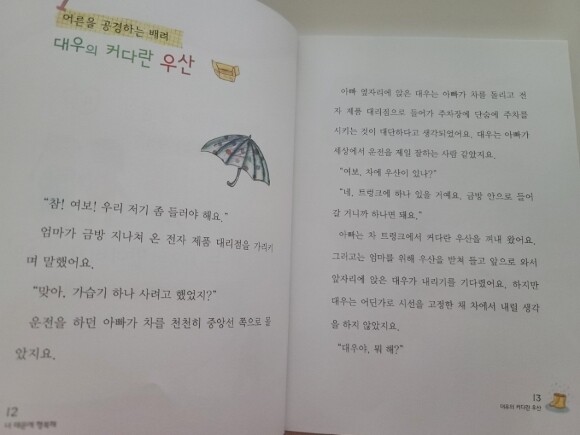 1
어른을 공경하는 배려
대우의 커다란 우산
"참! 여보! 우리 저기 좀 들러야 해요."
엄마가 금방 지나쳐 온 전자 제품 대리점을 가리키
며 말했어요.
"맞아, 가습기 하나 사려고 했었지?"
운전을 하던 아빠가 차를 천천히 중앙선 쪽으로 몰
았지요.
12
너 때문에 행복해
아빠 옆자리에 앉은 대우는 아빠가 차를 돌리고 전
자 제품 대리점으로 들어가 주차장에 단숨에 주차를
시키는 것이 대단하다고 생각되었어요. 대우는 아빠가
세상에서 운전을 제일 잘하는 사람 같았지요.
"여보, 차에 우산이 있나?"
"네, 트렁크에 하나 있을 거예요. 금방 안으로 들어
갈 거니까 하나면 돼요."
아빠는 차 트렁크에서 커다란 우산을 꺼내 왔어요.
그리고는 엄마를 위해 우산을 받쳐 들고 앞으로 와서
앞자리에 앉은 대우가 내리기를 기다렸어요. 하지만
대우는 어딘가로 시선을 고정한 채 차에서 내릴 생각
을 하지 않았지요.
"대우야, 뭐 해?"
13
대우의 커다란 우산